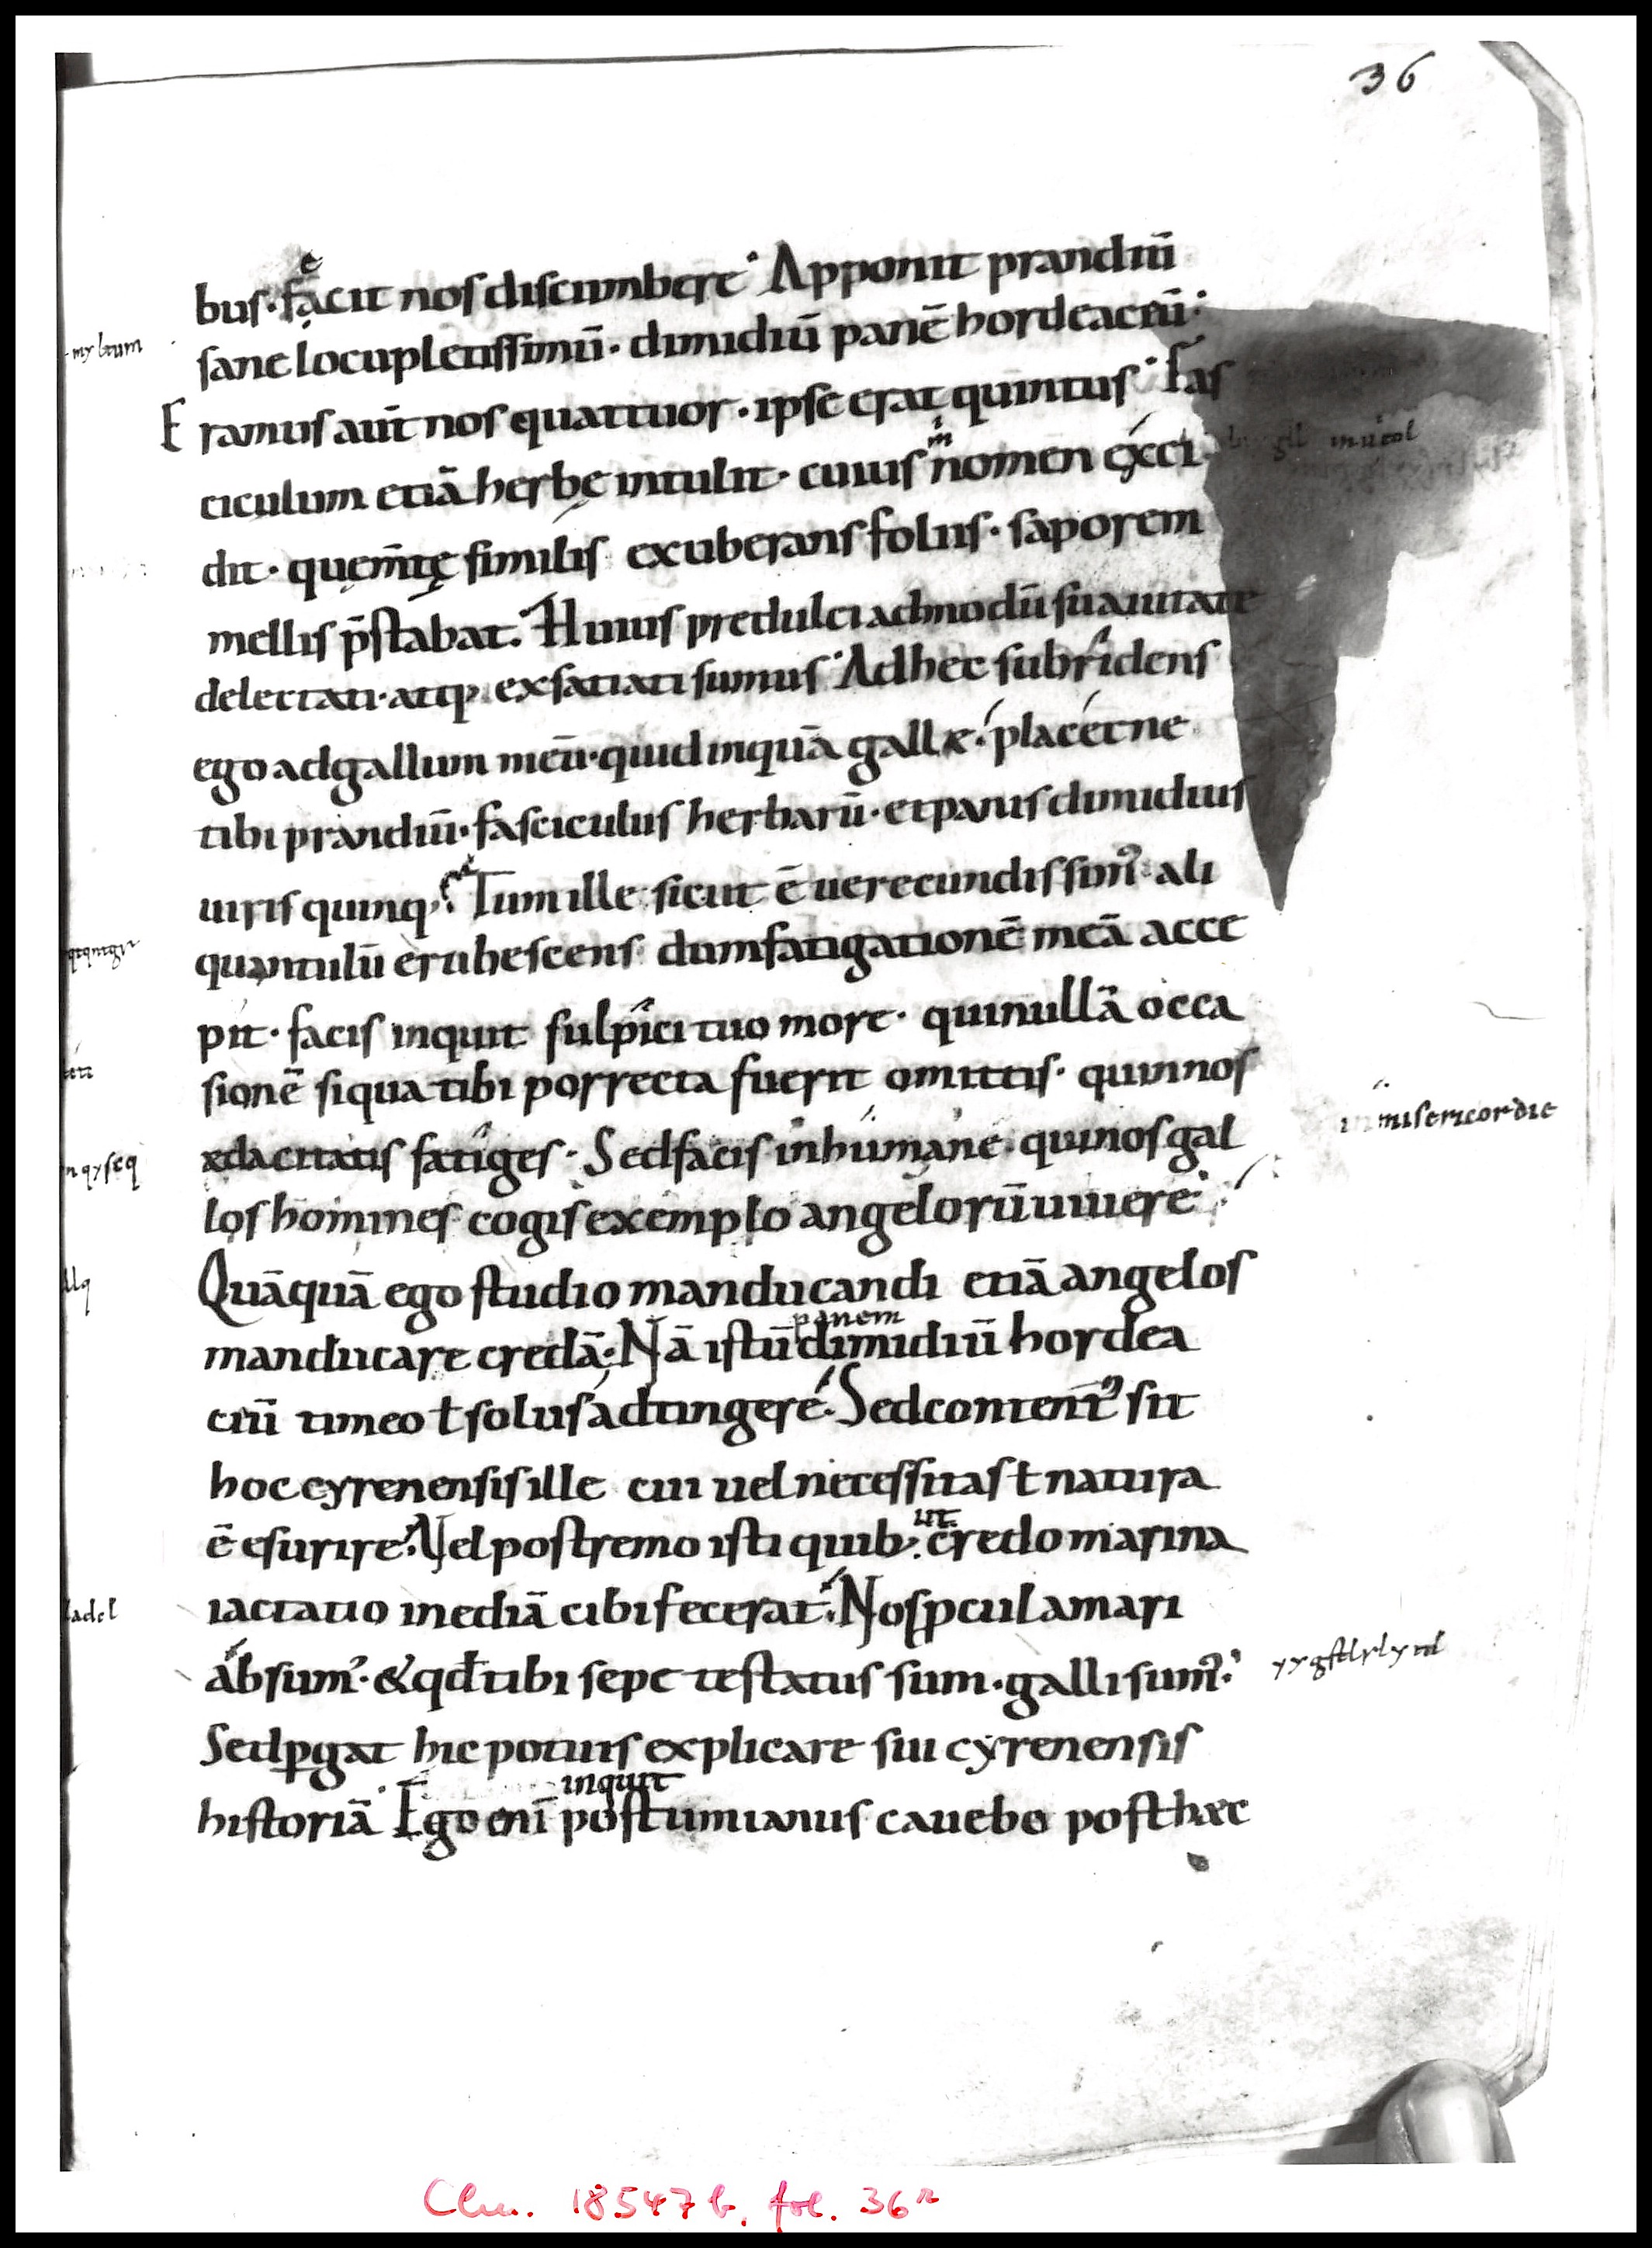 36
bus· facit nos discumbere· Apponit prandiū
sane locupletissimū· dimidiū panē hordeaciū·
Eramus aūt nos quattuor· ipse erat quintus· Fas
ciculum etiā herbę intulit· cuius nomen exci
dit· que m̄tę similis exuberans foliis· saporem
mellis p̄stabat. Huius predulci admodū suauitate
delectati· atq; exsatiati sumus· Ad hec subridens
ego ad gallum meū· quid inquā galle· placetne
tibi prandiū· fasciculus herbarū· et panis dimidius
uiris quinq; Tum ille sicut ē uerecundissim᾿ ali
quantulū erubescens dum fatigationē meā acce
pit· facis inquit sulpici tuo more· qui nullā occa
sionē si qua tibi porrecta fuerit omittis· quin nos
edacitatis fatiges· Sed facis inhumane· qui nos gal
los homines cogis exemplo angelorū uiuere·
misericordie
Quāquā ego studio manducandi etiā angelos
manducare credā· Nā istū dimidiū hordea
panem
ciū timeo ł solus adtingere· Sed content᾿ sit
hoc cyrenensis ille cui uel necessitas ł natura
ē esurire· Vel postremo isti quib; credo marina
ut
iactatio inediā cibi fecerat· Nos ꝓcul a mari
absum᾿· & qđ tibi sepe testatus sum· galli sum᾿·
Sed ꝑgat hic potius explicare sui cyrenensis
historiā· Ego eni postumianus cauebo posthec
inquit
Clm. 18547 b, fol. 36r